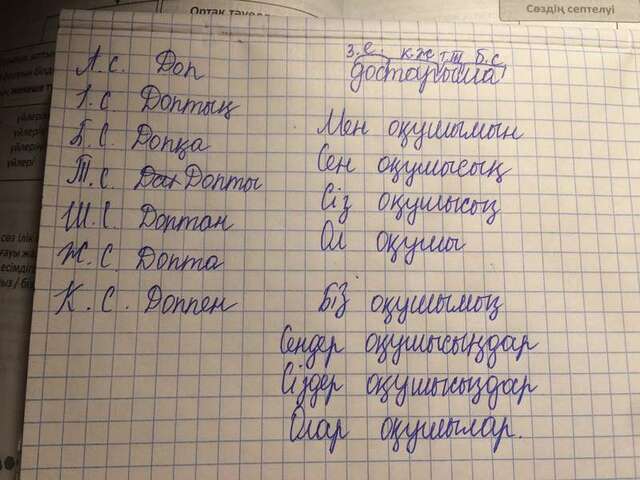 Ортақ тәуел
Сөздің септелуі
з.е. к.ж т.ж б.с.
достарыма
А.С. Доп
І.С Доптың
Б.С. Допқа
Т.С. Допты
Ш.С. Доптан
Ж.С. Допта
К.С. Доппен
Мен оқушымын
Сен оқушысың
Сіз оқушысыз
Ол оқушы
Біз оқушымыз
Сендер оқушысыңдар
Сіздер оқушысыздар
Олар оқушылар.